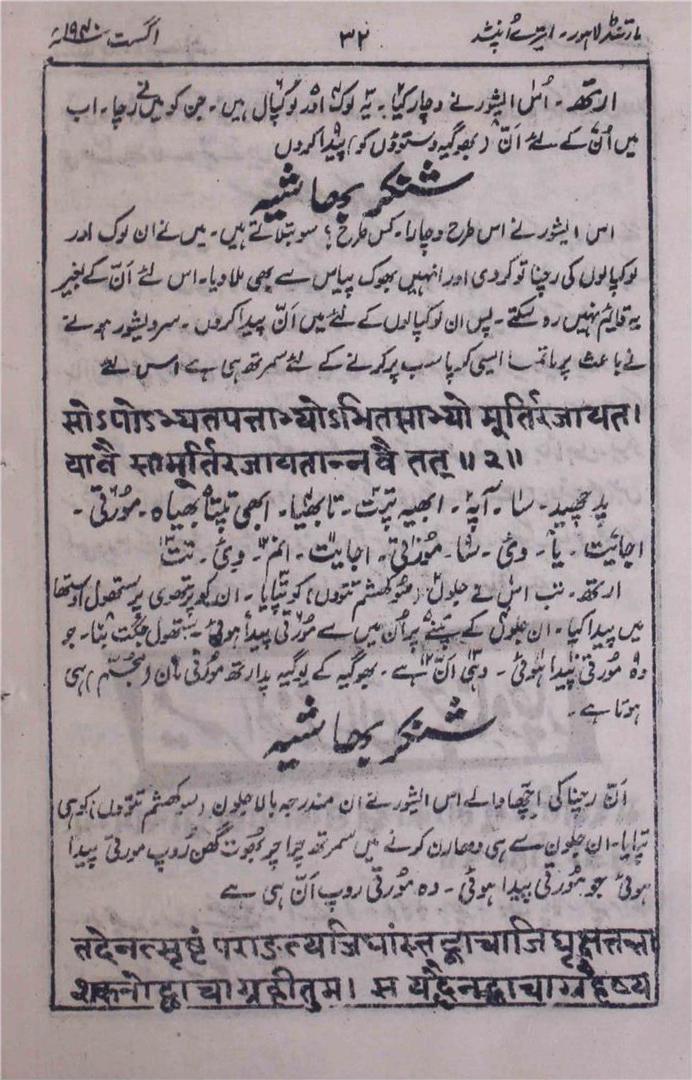 مارتنڈ لاہور۔ ایترے اُپنشد ۳۲ اگست ۱۹۴۰ء
ارتھ۔ اُس ایشور نے وچار کیا۔ یہ لوک اور لوکپال ہیں۔ جن کو میں نے رچا۔ اب
میں اُن کے لئے اَنّ (بھوگیہ وستوؤں کو) پیدا کروں
شنکر بھاشیہ
اس ایشور نے اس طرح وچارا۔ کس طرح؟ سو بتلاتے ہیں۔ میں نے ان لوک اور
لوکپالوں کی رچنا تو کر دی اور انہیں بھوک پیاس سے بھی ملا دیا۔ اس لئے اَنّ کے بغیر
یہ قائم نہیں رہ سکتے۔ پس ان لوکپالوں کے لئے میں اَنّ پیدا کروں۔ سرویشور ہونے
کے باعث پرماتما ایسی کرپا سب پر کرنے کے لئے سمرتھ ہی ہے اس لئے
सोऽपोऽभ्यतपत्ताभ्योऽभितप्ताभ्यो मूर्तिरजायत।
या वै सा मूर्तिरजायतान्नं वै तत् ॥ २॥
پدچھید۔ سا۔ آپہ۔ ابھیہ تپت۔ تابھیا۔ ابھی تپتا بھیاہ۔ مُورتی۔
اجایت۔ یا۔ وئی۔ سا۔ مُورتی۔ اجایت۔ انم۔ وئی۔ تت
ارتھ۔ تب اس نے جلوں (سوکھشم تتوں) کو تپایا۔ ان کو پرتھوی پر ستھول اوستھا
میں پیدا کیا۔ ان جلوں کے تپنے پر اُن میں سے مُورتی پیدا ہوئی۔ ستھول جگت بنا۔ جو
وہ مُورتی پیدا ہوئی۔ وہی اَنّ ہے۔ بھوگیہ کے یوگیہ پدارتھ مُورتی مان (مجسّم) ہی
ہوتا ہے۔
شنکر بھاشیہ
اَنّ رچنا کی اِچھّا والے اس ایشور نے ان مندرجہ بالا جلوں (سوکھشم تتوں) کو ہی
تپایا۔ ان جلوں سے ہی دھارن کرنے میں سمرتھ چراچر بھوت گھن رُوپ مورتی پیدا
ہوئی جو مُورتی پیدا ہوئی۔ وہ مُورتی روپ اَنّ ہی ہے
तदेनत्सृष्टं पराङत्यजिघांसत्तद्वाचाजिघृक्षत्तन्ना
शक्नोद्वाचा ग्रहीतुम। स यद्धैनद्वाचाग्रहैष्य